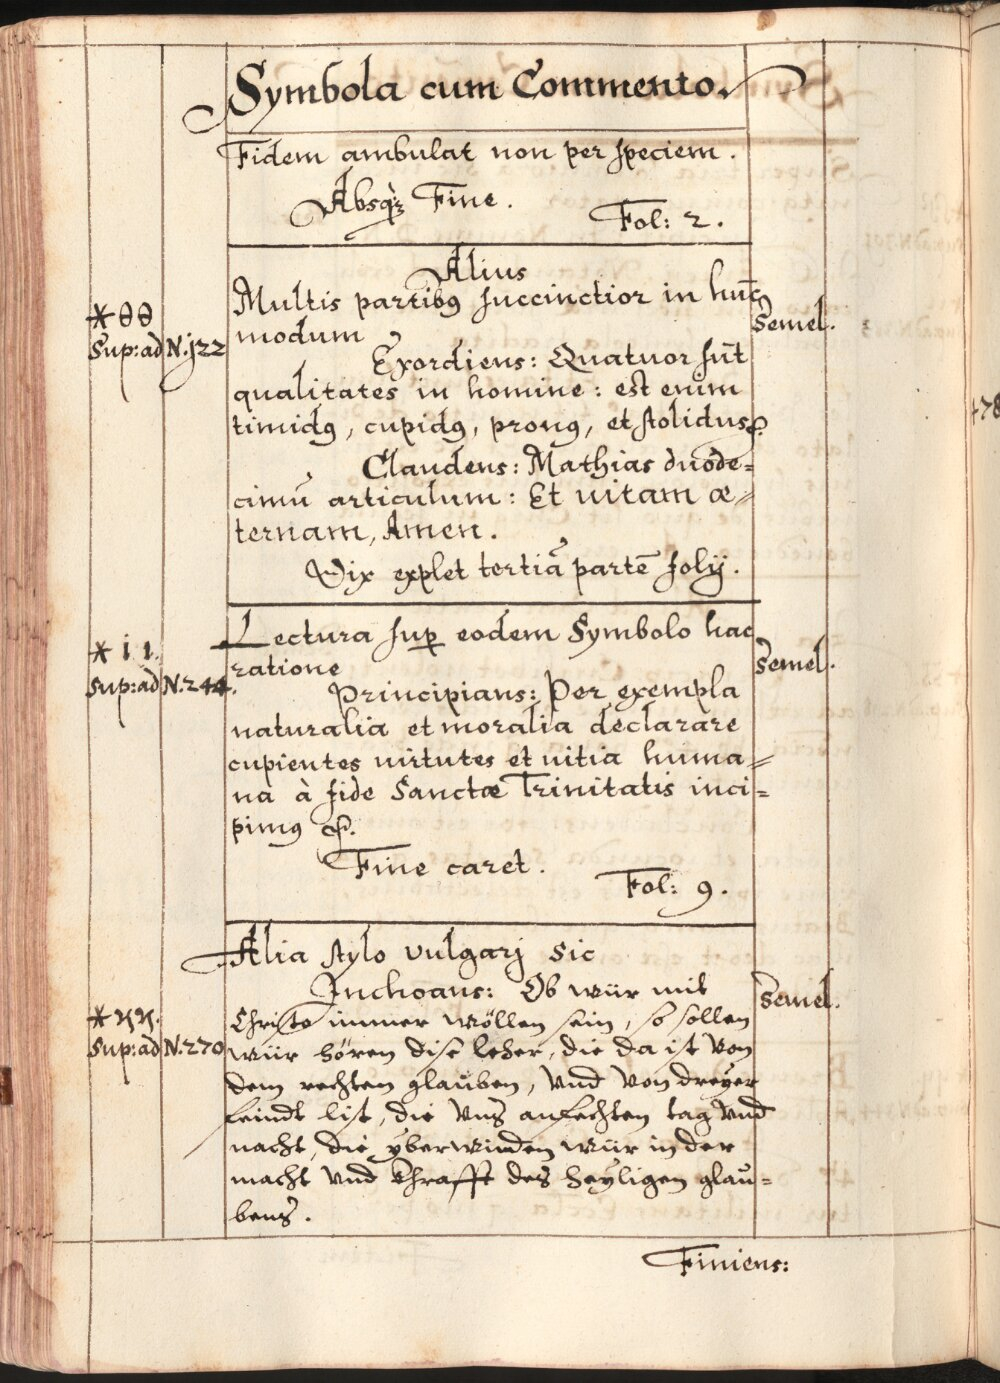 Symbola cum Commento.
Fidem ambulat non per speciem.
Absq; Fine.
Fol: 2.
Alius
Multis partibꝯ succinctior in hūc
modum
Exordiens: Quatuor sūt
qualitates in homine: est enim
timidꝯ, cupidꝯ, pronꝯ, et stolidus
Claudens: Mathias duode=
cimū articulum: Et uitam æ=
ternam, Amen.
Vix explet tertiā partē folij.
*θθ
Sup: ad N. 122
Semel.
Lectura suꝑ eodem Symbolo hac
ratione
Principians: Per exempla
naturalia et moralia declarare
cupientes uirtutes et uitia huma=
na à fide Sanctæ Trinitatis inci=
pimꝯ
Fine caret.
Fol: 9.
* i i.
Sup: ad N. 244.
Semel.
Alia stylo vulgarj sic
Inchoans: Ob wür mit
Christo immer wöllen sein, so sollen
wür hören dise leher, die da ist von
dem rechten glauben, vnd von dreyer
feindt list, die vns anfechten tag vnd
nacht, die yberwinden wür in der
macht vnd Chrafft des heyligen glau=
bens.
* ϰϰ.
Sup: ad N. 270
Semel.
Finiens: